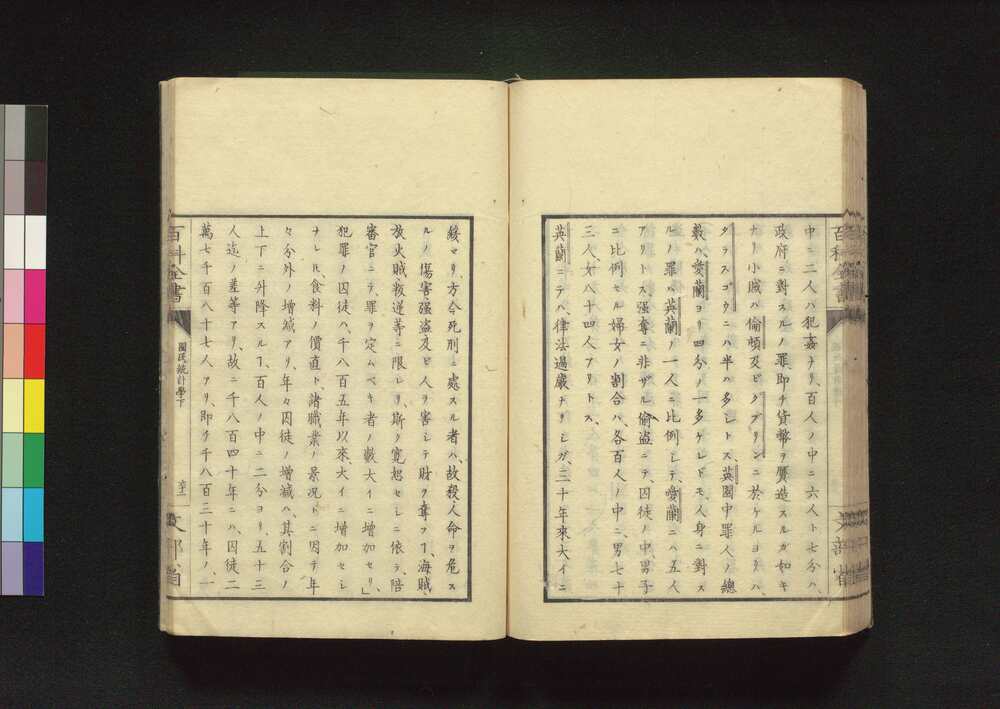 中ニ二人ハ犯姦ナリ、百人ノ中ニ六人ト七分ハ、
政府ニ對スルノ罪、即チ貨幣ヲ贋造スルガ如キ
ナリ、小賊ハ、倫頓及ビダブリンニ於ケルヨリハ、
グラスゴウニハ半ハ多シトス、英國中罪人ノ總
數ハ、愛蘭ヨリ四分ノ一多ケレドモ、人身ニ對ス
ルノ罪ハ、英蘭ノ一人ニ比例シテ、愛蘭ニハ五人
アリトス、强奪ニ非ザル偷盗ニテ、囚徒ノ中、男子
ニ比例セル婦女ノ割合ハ、各百人ノ中ニ、男七十
三人、女八十四人アリトス、
英蘭ニテハ、律法過嚴ナリシガ、三十年來大イニ
緩マリ、方今死刑ニ處スル者ハ、故殺人命ヲ危ス
ルノ傷害强盗及ビ人ヲ害シテ財ヲ奪フヿ、海賊、
放火賊叛逆等ニ限レリ、斯ク寛恕セシニ依テ、陪
審官ニテ、罪ヲ定ムベキ者ノ數大イニ増加セリ、」
犯罪ノ囚徒ハ、千八百五年以來、大イニ増加セシ
ナレ𪜈、食料ノ價直ト、諸職業ノ景况トニ因テ年
々分外ノ増減アリ、年々囚徒ノ増減ハ、其割合ノ
上下ニ升降スルヿ、百人ノ中ニ二分ヨリ、五十三
人迄ノ差等アリ、故ニ千八百四十年ニハ、囚徒二
萬七千百八十七人アリ、即チ千八百三十年ノ、一
百科全書
國民統計學下
文部省